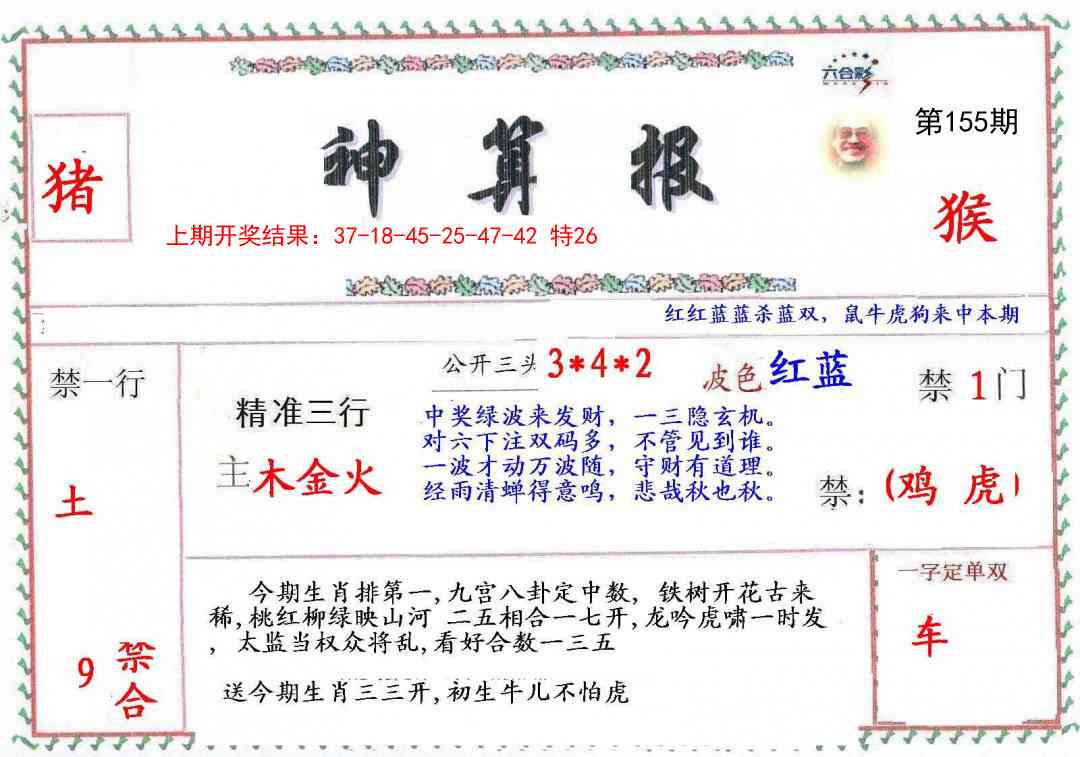 六合彩
第155期
神算报
猪
猴
上期开奖结果：37-18-45-25-47-42 特26
红红蓝蓝杀蓝双，鼠牛虎狗来中本期
禁一行
土
9
禁合
精准三行
主木金火
公开三头3*4*2
波色红蓝
中奖绿波来发财，一三隐玄机。
对六下注双码多，不管见到谁。
一波才动万波随，守财有道理。
经雨清蝉得意鸣，悲哉秋也秋。
禁1门
禁：(鸡 虎)
今期生肖排第一,九宫八卦定中数，铁树开花古来
稀,桃红柳绿映山河 二五相合一七开,龙吟虎啸一时发
，太监当权众将乱,看好合数一三五
送今期生肖三三开,初生牛儿不怕虎
一字定单双
车